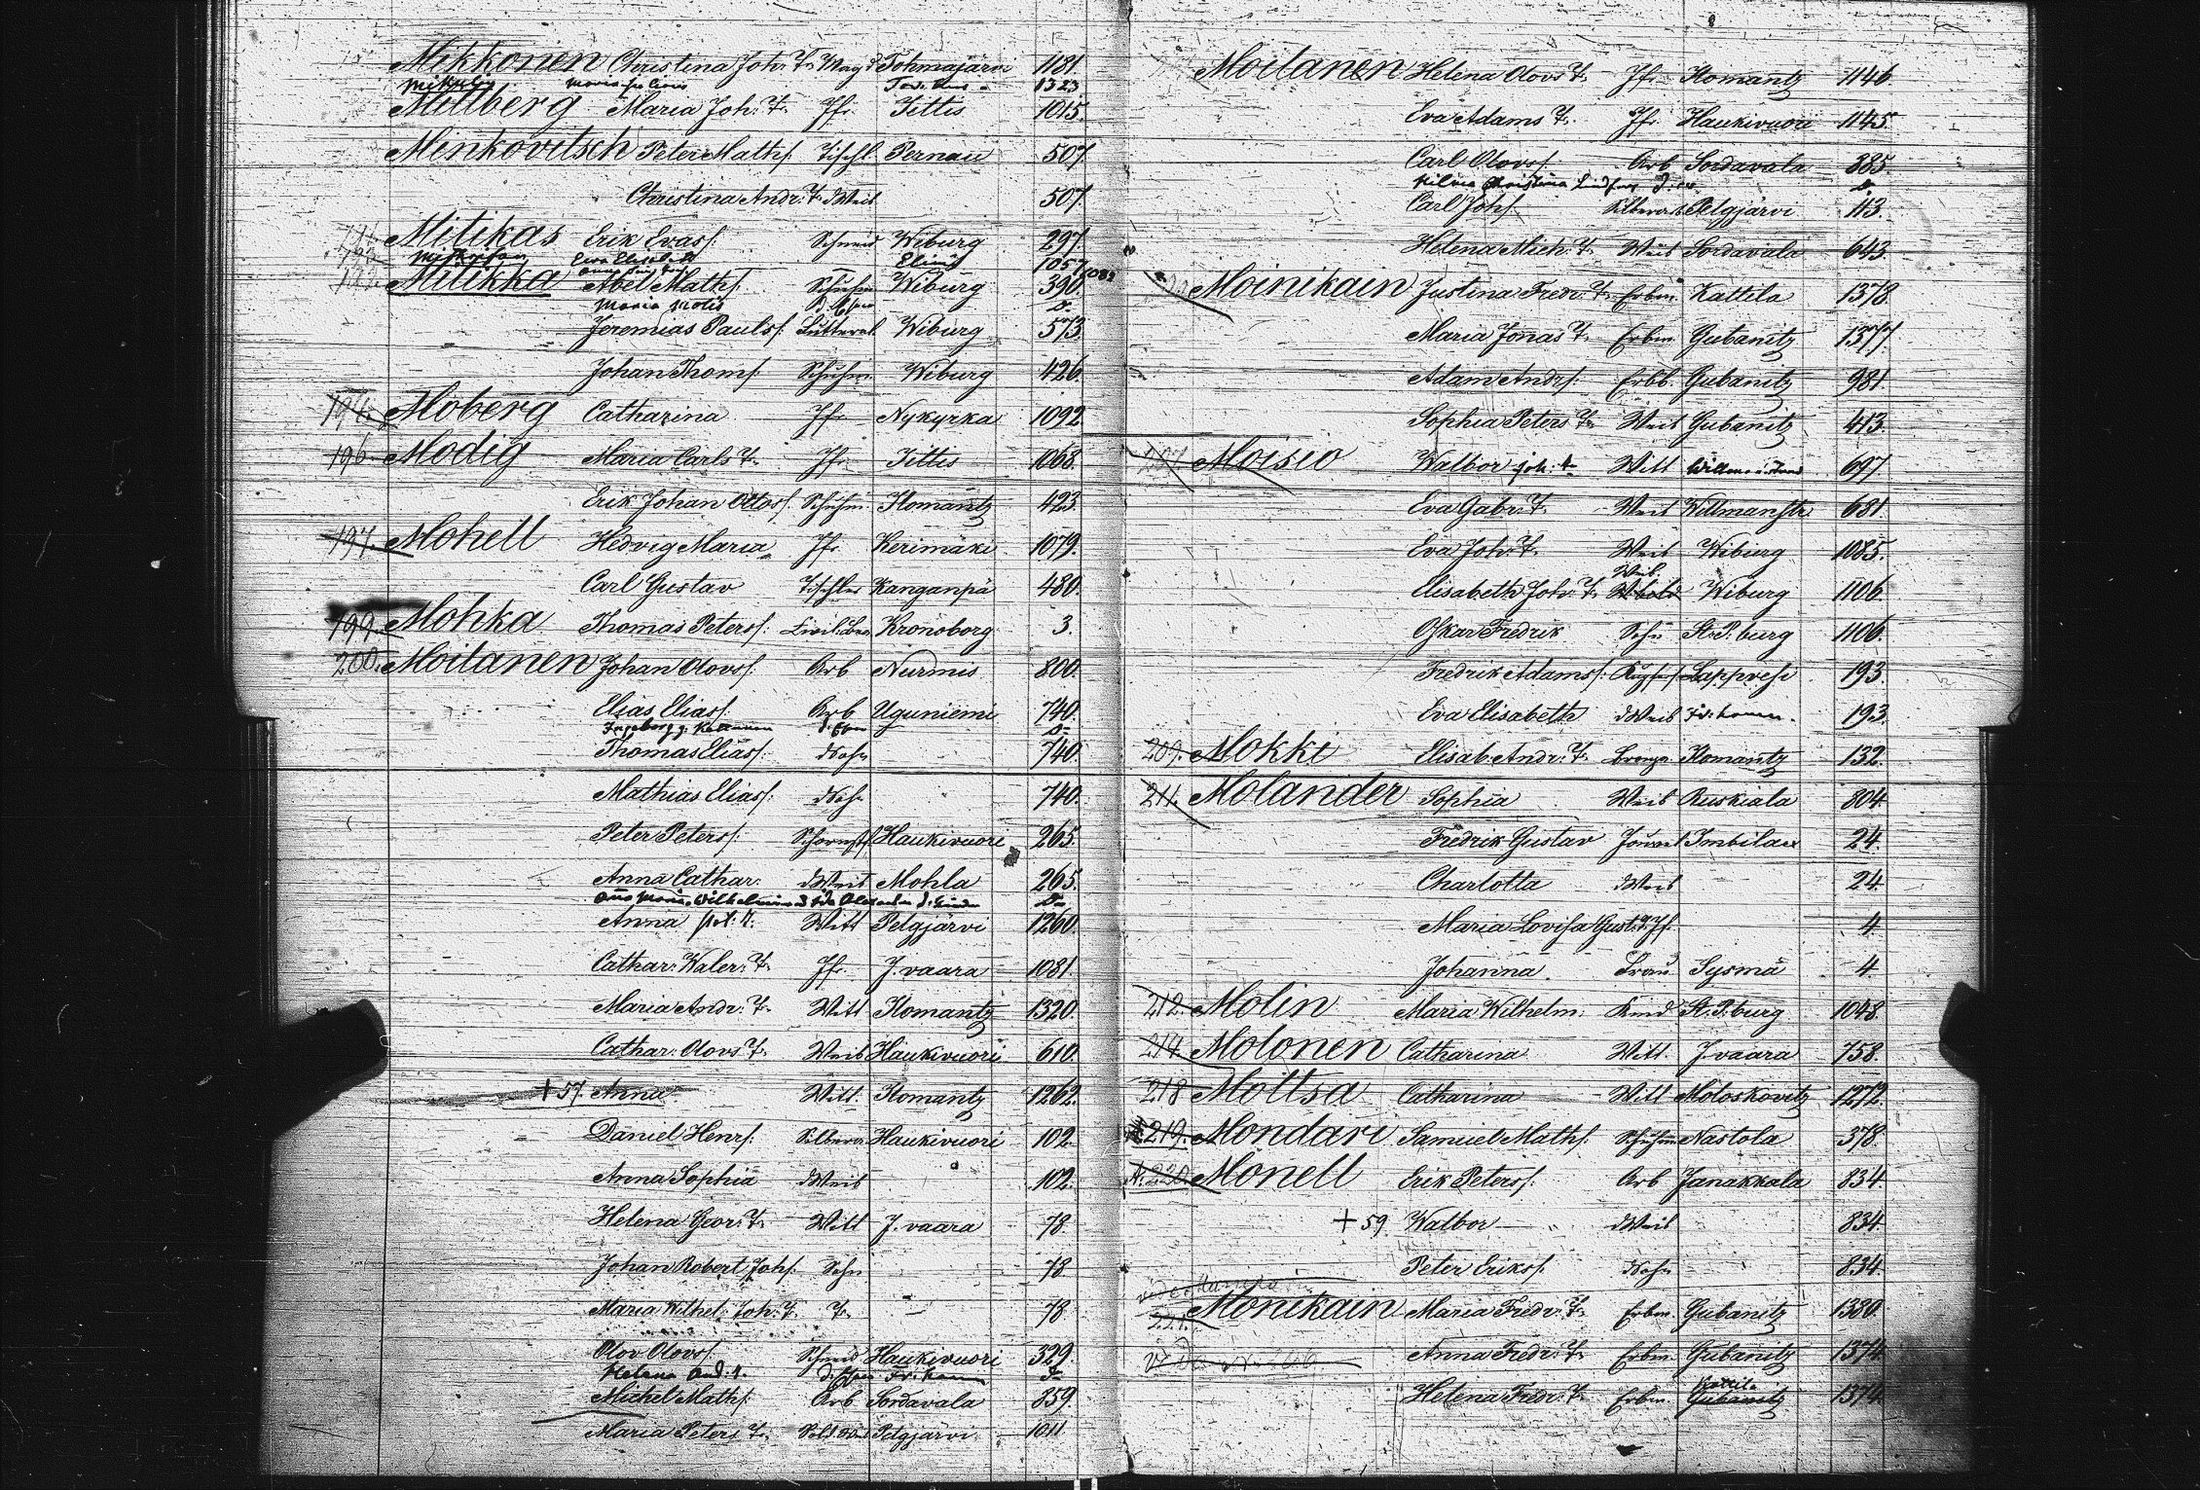 Mikkonen Christina Joh: T. Magd Tohmajärvi 1181.
1323.
Millberg Maria Joh: T. Jfr. Jittis 1015.
Minkovitsch Peter Maths. Tischl Pernau 507.
Christina Andr: T. d Weib 507.
Mitikas Erik Evass. Schneid Wiburg 297.
Eva Elisabeth 1057
Mitikka Abel Maths. Schuhm Wiburg 390.
Maria
Jeremias Pauls. Wiburg 573.
Johan Thoms. Schuhm. Wiburg 426.
Moberg Catharina Jfr. Nykyrka 1092.
196. Modig Maria Carls T. Jfr. Jittis 1068.
Erik Johan Ottos. Schuhm. Ilomantz 423.
197. Mohell Hedvig Maria Jfr. Kerimäki 1079.
Carl Gustav Tischler Kanganpä 480.
199. Mohka Thomas Peters. Kronoborg 3.
200. Moilanen Johan Olovs. Arb Nurmis 800.
Elias Elias. Arb Uguniemi 740.
Thomas Elias. d Sohn 740.
Mathias Elias. d Sohn 740.
Peter Peters. Schornstf Haukivuori 265.
Anna Cathar: d Weib Mohla 265.
Anna Pet. T. Witt Pelgjärvi 1260.
Cathar: Waler: T. Jfr. J. vaara 1081.
Maria Andr: T. Witt Ilomantz 1320.
Cathar: Olovs T. Weib Haukivuori 610.
+ 57. Anna Witt. Ilomantz 1262.
Daniel Henrs. Silberar Haukivuori 102.
Anna Sophia d Weib 102.
Helena Geor: T. Witt J. vaara 78.
Johan Robert Johs. Sohn 78.
Maria Wilhel: Joh: T. T. 78.
Olov Olovs. Schneid Haukivuori 329.
Helena And. T.
Michel Maths. Arb Sordavala 859.
Maria Peters T. Pelgjärvi 1011
Moilanen Helena Olovs T. Jfr. Ilomantz 1146.
Eva Adams T. Jfr. Haukivuori 1145.
Carl Olovs. Arb Sordavala 385.
Christina
Carl Johs. Silberar Pelgjärvi 113.
Helena Mich: T. Weib Sordavala 643.
Moinikain Justina Fredr: T. Erbm Kattila 1378.
Maria Jonas T. Erbm. Gubanitz 1377.
Adam Andrs. Erbb. Gubanitz 981.
Sophia Peters T. Weib Gubanitz 413.
207. Moisio Walbor Joh: T. Witt Willmanstrand 697.
Eva Gabr: T. Weib Willmanstr. 681.
Eva Joh: T. Weib Wiburg 1085.
Weib
Elisabeth Joh: T. Wiburg 1106.
Oskar Fredrik Sohn St. P. burg 1106.
Fredrik Adams. Lappvesi 193.
Eva Elisabeth d Weib 193.
209. Mokki Elisab: Andr: T. Ilomantz 132.
211. Molander Sophia Weib Ruskiala 804.
Fredrik Gustav Imbilax 24.
Charlotta d Weib 24.
Maria Lovisa Gust. T. Jf. 4.
Johanna Frau Sysmä 4.
212. Molin Maria Wilhelm: Kind St. P. burg 1048.
214. Molonen Catharina Witt. J vaara 758.
218 Moltsa Catharina Witt Moloskovitz 1272.
219. Mondari Samuel Maths. Schuhm Nastola 378.
220. Monell Erik Peters. Arb Janakkala 834.
+ 59. Walbor d Weib 834.
Peter Eriks. d Sohn 834.
Monikain Maria Fredr: T. Erbm. Gubanitz 1380.
Anna Fredr: T. Erbm. Gubanitz 1374.
Kattila
Helena Fredr: T. Erbm. Gubanitz 1374.